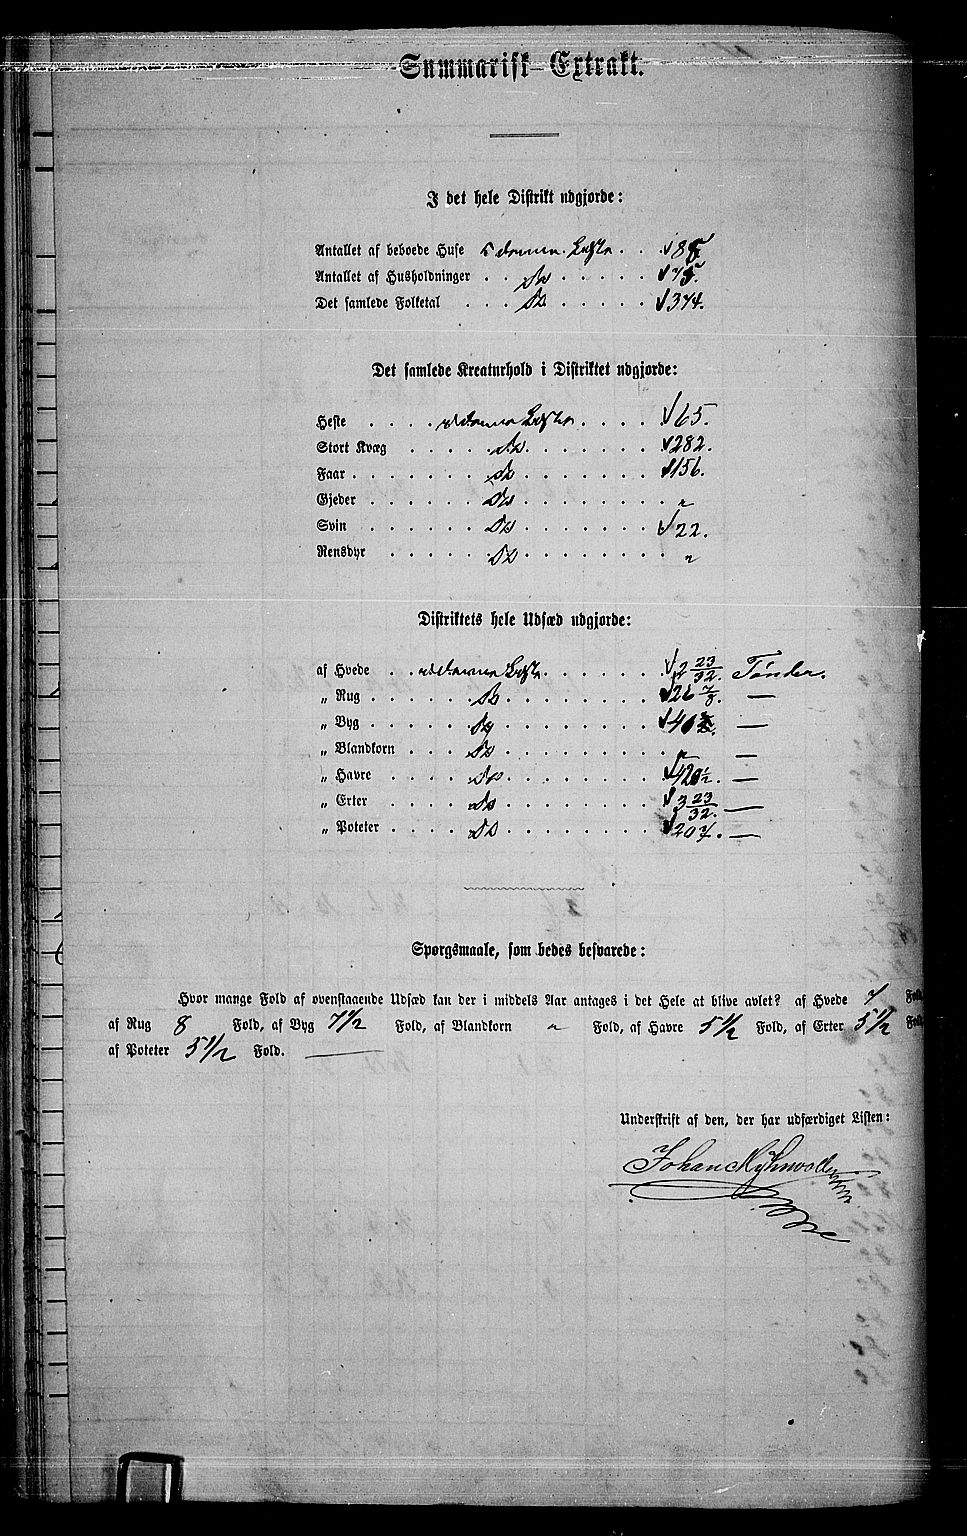 Summarisk Extrakt.
I det hele Distrikt udgjorde:
Antallet af beboede Huse i denne Liste . . 85
Antallet af Husholdninger . . Do . . . . . 75.
Det samlede Folketal . . . Do . . . . . 374.
Det samlede Kreaturhold i Distriktet udgjorde:
Heste . . . . i denne Liste . . . . 65.
Stort Kvæg . . . . Do . . . . . . 282.
Faar . . . . . . Do . . . . . . 156.
Gjeder . . . . . Do . . . . . . "
Svin . . . . . Do . . . . . . 22.
Rensdyr . . . . Do . . . . . . "
Distriktets hele Udsæd udgjorde:
af Hvede . . i denne Liste . . . . . 2 23/32. Tønder.
„ Rug . . . . . Do . . . . . . 26 7/8. —
„ Byg . . . . . Do . . . . . . —
„ Blandkorn . . . . Do . . . . . . " —
„ Havre . . . . Do . . . . . . 420 1/2. —
„ Erter . . . . Do . . . . . . 3 23/32. —
„ Poteter . . . . Do . . . . . . —
Spørgsmaale, som bedes besvarede:
Hvor mange Fold af ovenstaaende Udsæd kan der i middels Aar antages i det Hele at blive avlet? af Hvede 7 Fold,
af Rug 8 Fold, af Byg 7 1/2 Fold, af Blandkorn " Fold, af Havre 5 1/2 Fold, af Erter 5 1/2 Fold,
af Poteter 5 1/2 Fold. ———
Underskrift af den, der har udfærdiget Listen:
Johan